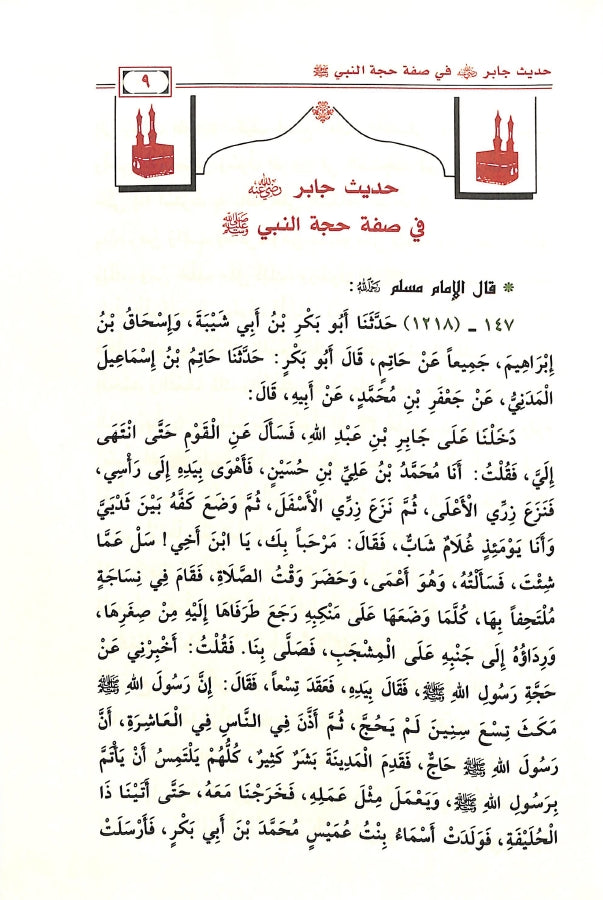 حديث جابر رضي الله عنه في صفة حجة النبي ﷺ
٩
حديث جابر رضي الله عنه
في صفة حجة النبي ﷺ
* قال الإمام مسلم رحمه الله:
١٤٧ ـ (١٢١٨) حَدَّثَنَا أَبُو بَكْرِ بْنُ أَبِي شَيْبَةَ، وَإِسْحَاقُ بْنُ
إِبْرَاهِيمَ، جَمِيعاً عَنْ حَاتِمٍ، قَالَ أَبُو بَكْرٍ: حَدَّثَنَا حَاتِمُ بْنُ إِسْمَاعِيلَ
الْمَدَنِيُّ، عَنْ جَعْفَرِ بْنِ مُحَمَّدٍ، عَنْ أَبِيهِ، قَالَ:
دَخَلْنَا عَلَى جَابِرِ بْنِ عَبْدِ اللهِ، فَسَأَلَ عَنِ الْقَوْمِ حَتَّى انْتَهَى
إِلَيَّ، فَقُلْتُ: أَنَا مُحَمَّدُ بْنُ عَلِيِّ بْنِ حُسَيْنٍ، فَأَهْوَى بِيَدِهِ إِلَى رَأْسِي،
فَنَزَعَ زِرِّي الْأَعْلَى، ثُمَّ نَزَعَ زِرِّي الْأَسْفَلَ، ثُمَّ وَضَعَ كَفَّهُ بَيْنَ ثَدْيَيَّ
وَأَنَا يَوْمَئِذٍ غُلَامٌ شَابٌّ، فَقَالَ: مَرْحَباً بِكَ، يَا ابْنَ أَخِي! سَلْ عَمَّا
شِئْتَ، فَسَأَلْتُهُ، وَهُوَ أَعْمَى، وَحَضَرَ وَقْتُ الصَّلَاةِ، فَقَامَ فِي نِسَاجَةٍ
مُلْتَحِفاً بِهَا، كُلَّمَا وَضَعَهَا عَلَى مَنْكِبِهِ رَجَعَ طَرَفَاهَا إِلَيْهِ مِنْ صِغَرِهَا،
وَرِدَاؤُهُ إِلَى جَنْبِهِ عَلَى الْمِشْجَبِ، فَصَلَّى بِنَا. فَقُلْتُ: أَخْبِرْنِي عَنْ
حَجَّةِ رَسُولِ اللهِ ﷺ، فَقَالَ بِيَدِهِ، فَعَقَدَ تِسْعاً، فَقَالَ: إِنَّ رَسُولَ اللهِ ﷺ
مَكَثَ تِسْعَ سِنِينَ لَمْ يَحُجَّ، ثُمَّ أَذَّنَ فِي النَّاسِ فِي الْعَاشِرَةِ، أَنَّ
رَسُولَ اللهِ ﷺ حَاجٌّ، فَقَدِمَ الْمَدِينَةَ بَشَرٌ كَثِيرٌ، كُلُّهُمْ يَلْتَمِسُ أَنْ يَأْتَمَّ
بِرَسُولِ اللهِ ﷺ، وَيَعْمَلَ مِثْلَ عَمَلِهِ، فَخَرَجْنَا مَعَهُ، حَتَّى أَتَيْنَا ذَا
الْحُلَيْفَةِ، فَوَلَدَتْ أَسْمَاءُ بِنْتُ عُمَيْسٍ مُحَمَّدَ بْنَ أَبِي بَكْرٍ، فَأَرْسَلَتْ